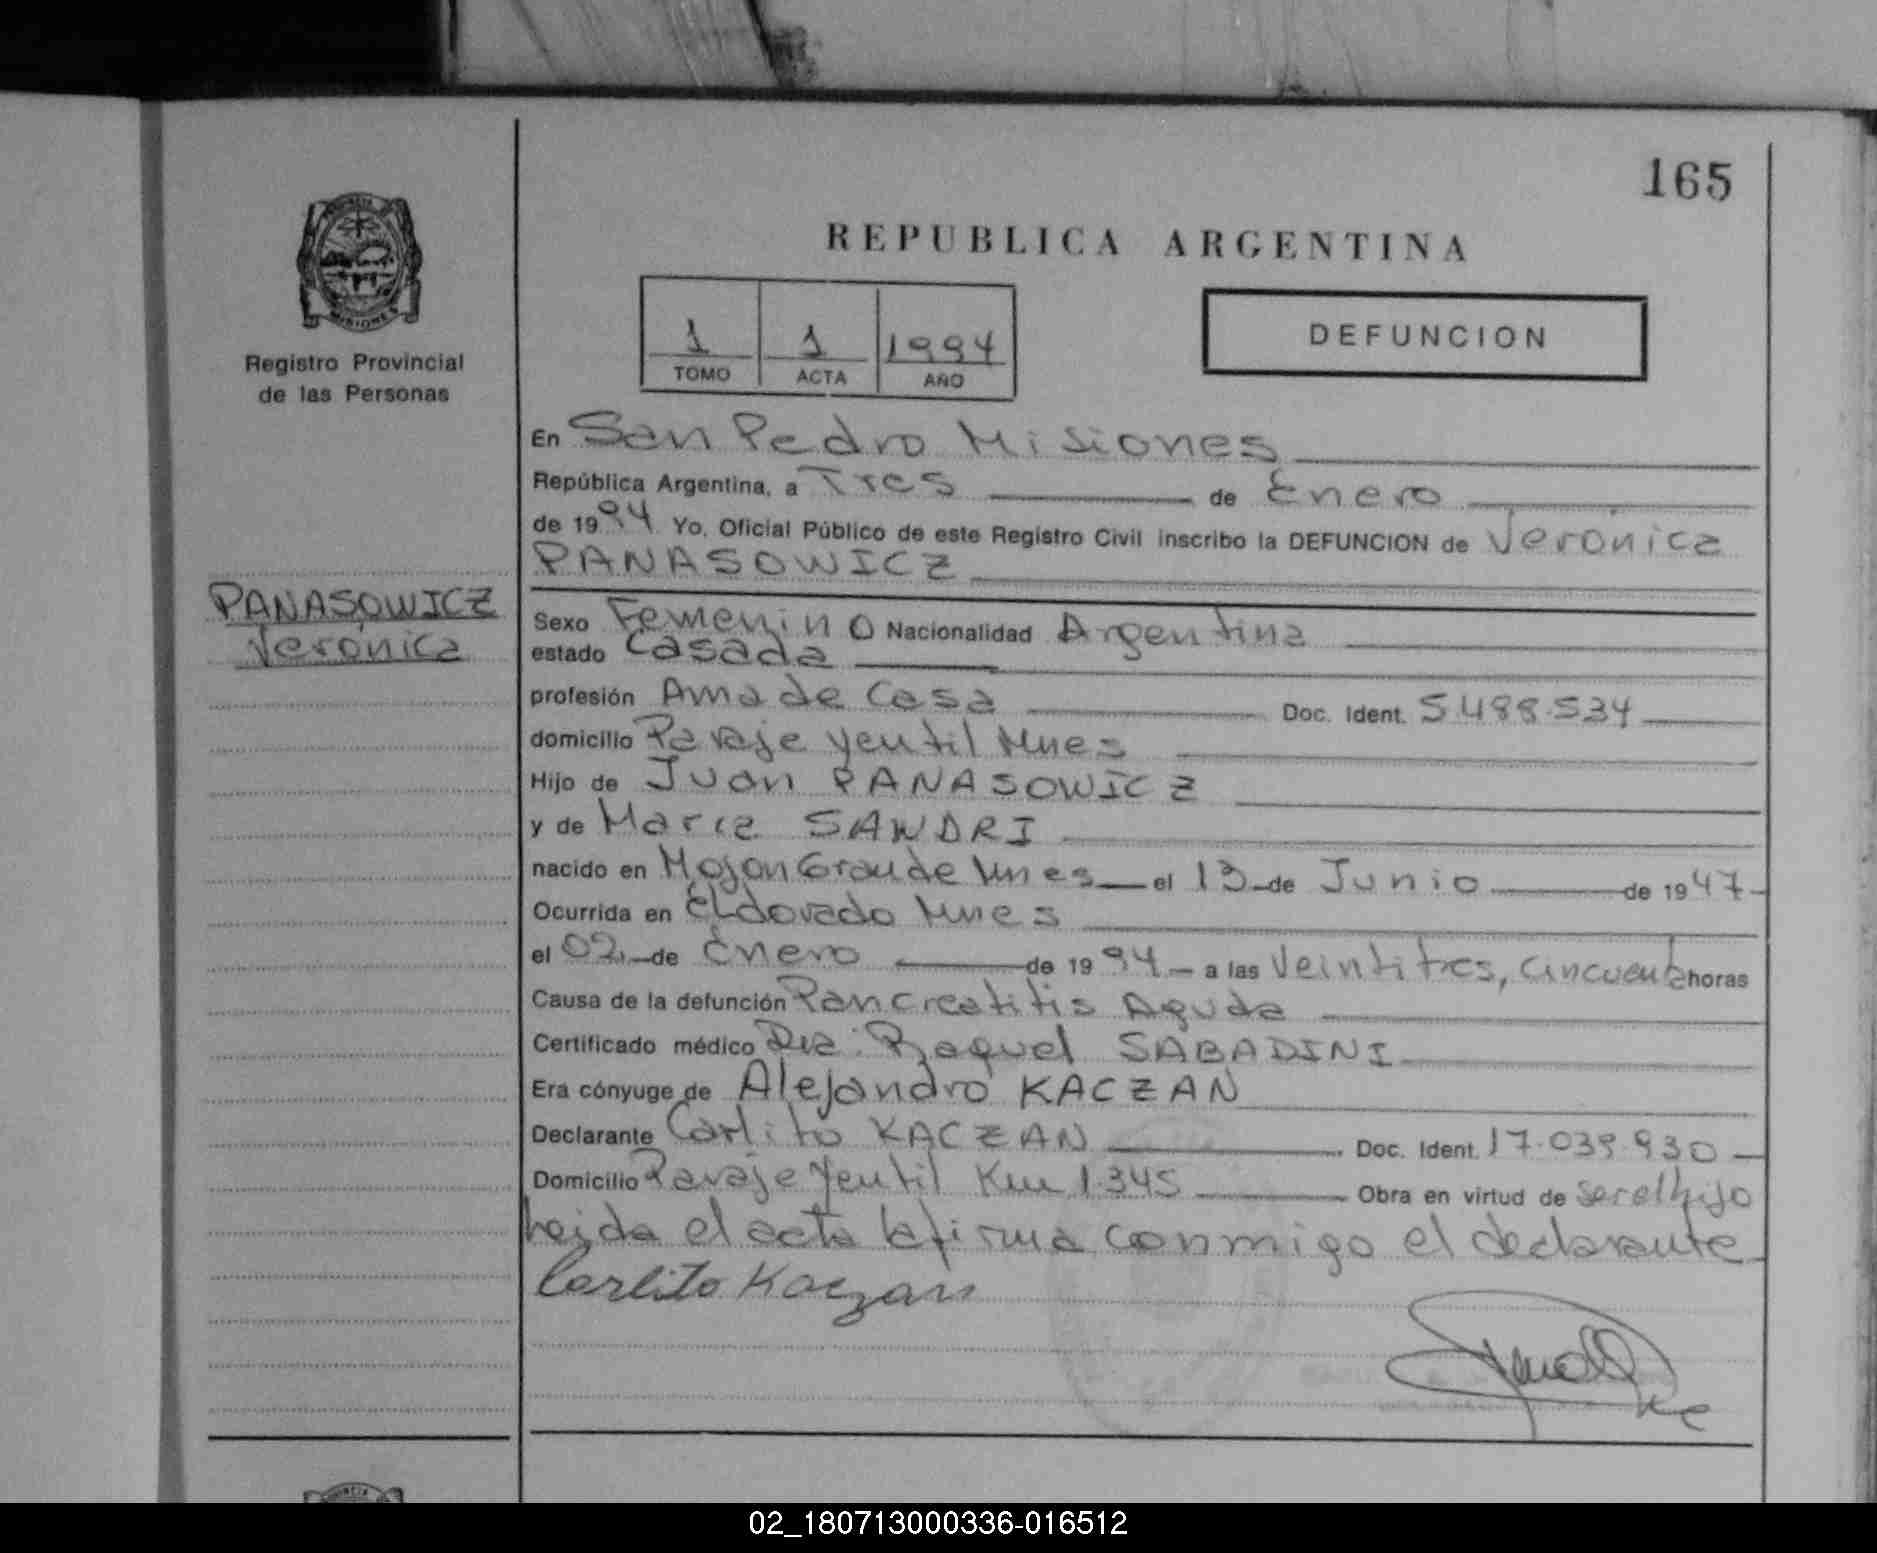 165
PROVINCIA DE
MISIONES
Registro Provincial
de las Personas
REPUBLICA ARGENTINA
1 1 1994
TOMO ACTA AÑO
DEFUNCION
En San Pedro Misiones
República Argentina, a Tres de Enero
de 1994 Yo, Oficial Público de este Registro Civil inscribo la DEFUNCION de Verónica
PANASOWICZ
PANASOWICZ
Verónica
Sexo Femenino Nacionalidad Argentina
estado Casada
profesión Ama de Casa Doc. Ident. 5.488.534
domicilio Paraje Yentil Mnes
Hijo de Juan PANASOWICZ
y de Maria SANDRI
nacido en Mojon Grande Mnes el 13 de Junio de 1947
Ocurrida en Eldorado Mnes
el 02 de Enero de 1994 a las Veintitres, cincuenta horas
Causa de la defunción Pancreatitis Aguda
Certificado médico Dra. Raquel SABADINI
Era cónyuge de Alejandro KACZAN
Declarante Carlito KACZAN Doc. Ident. 17.039.930
Domicilio Paraje Yentil Km 1.345 Obra en virtud de ser el hijo
Leida el acta la firma conmigo el declarante
Carlito Kaczan
02_180713000336-016512